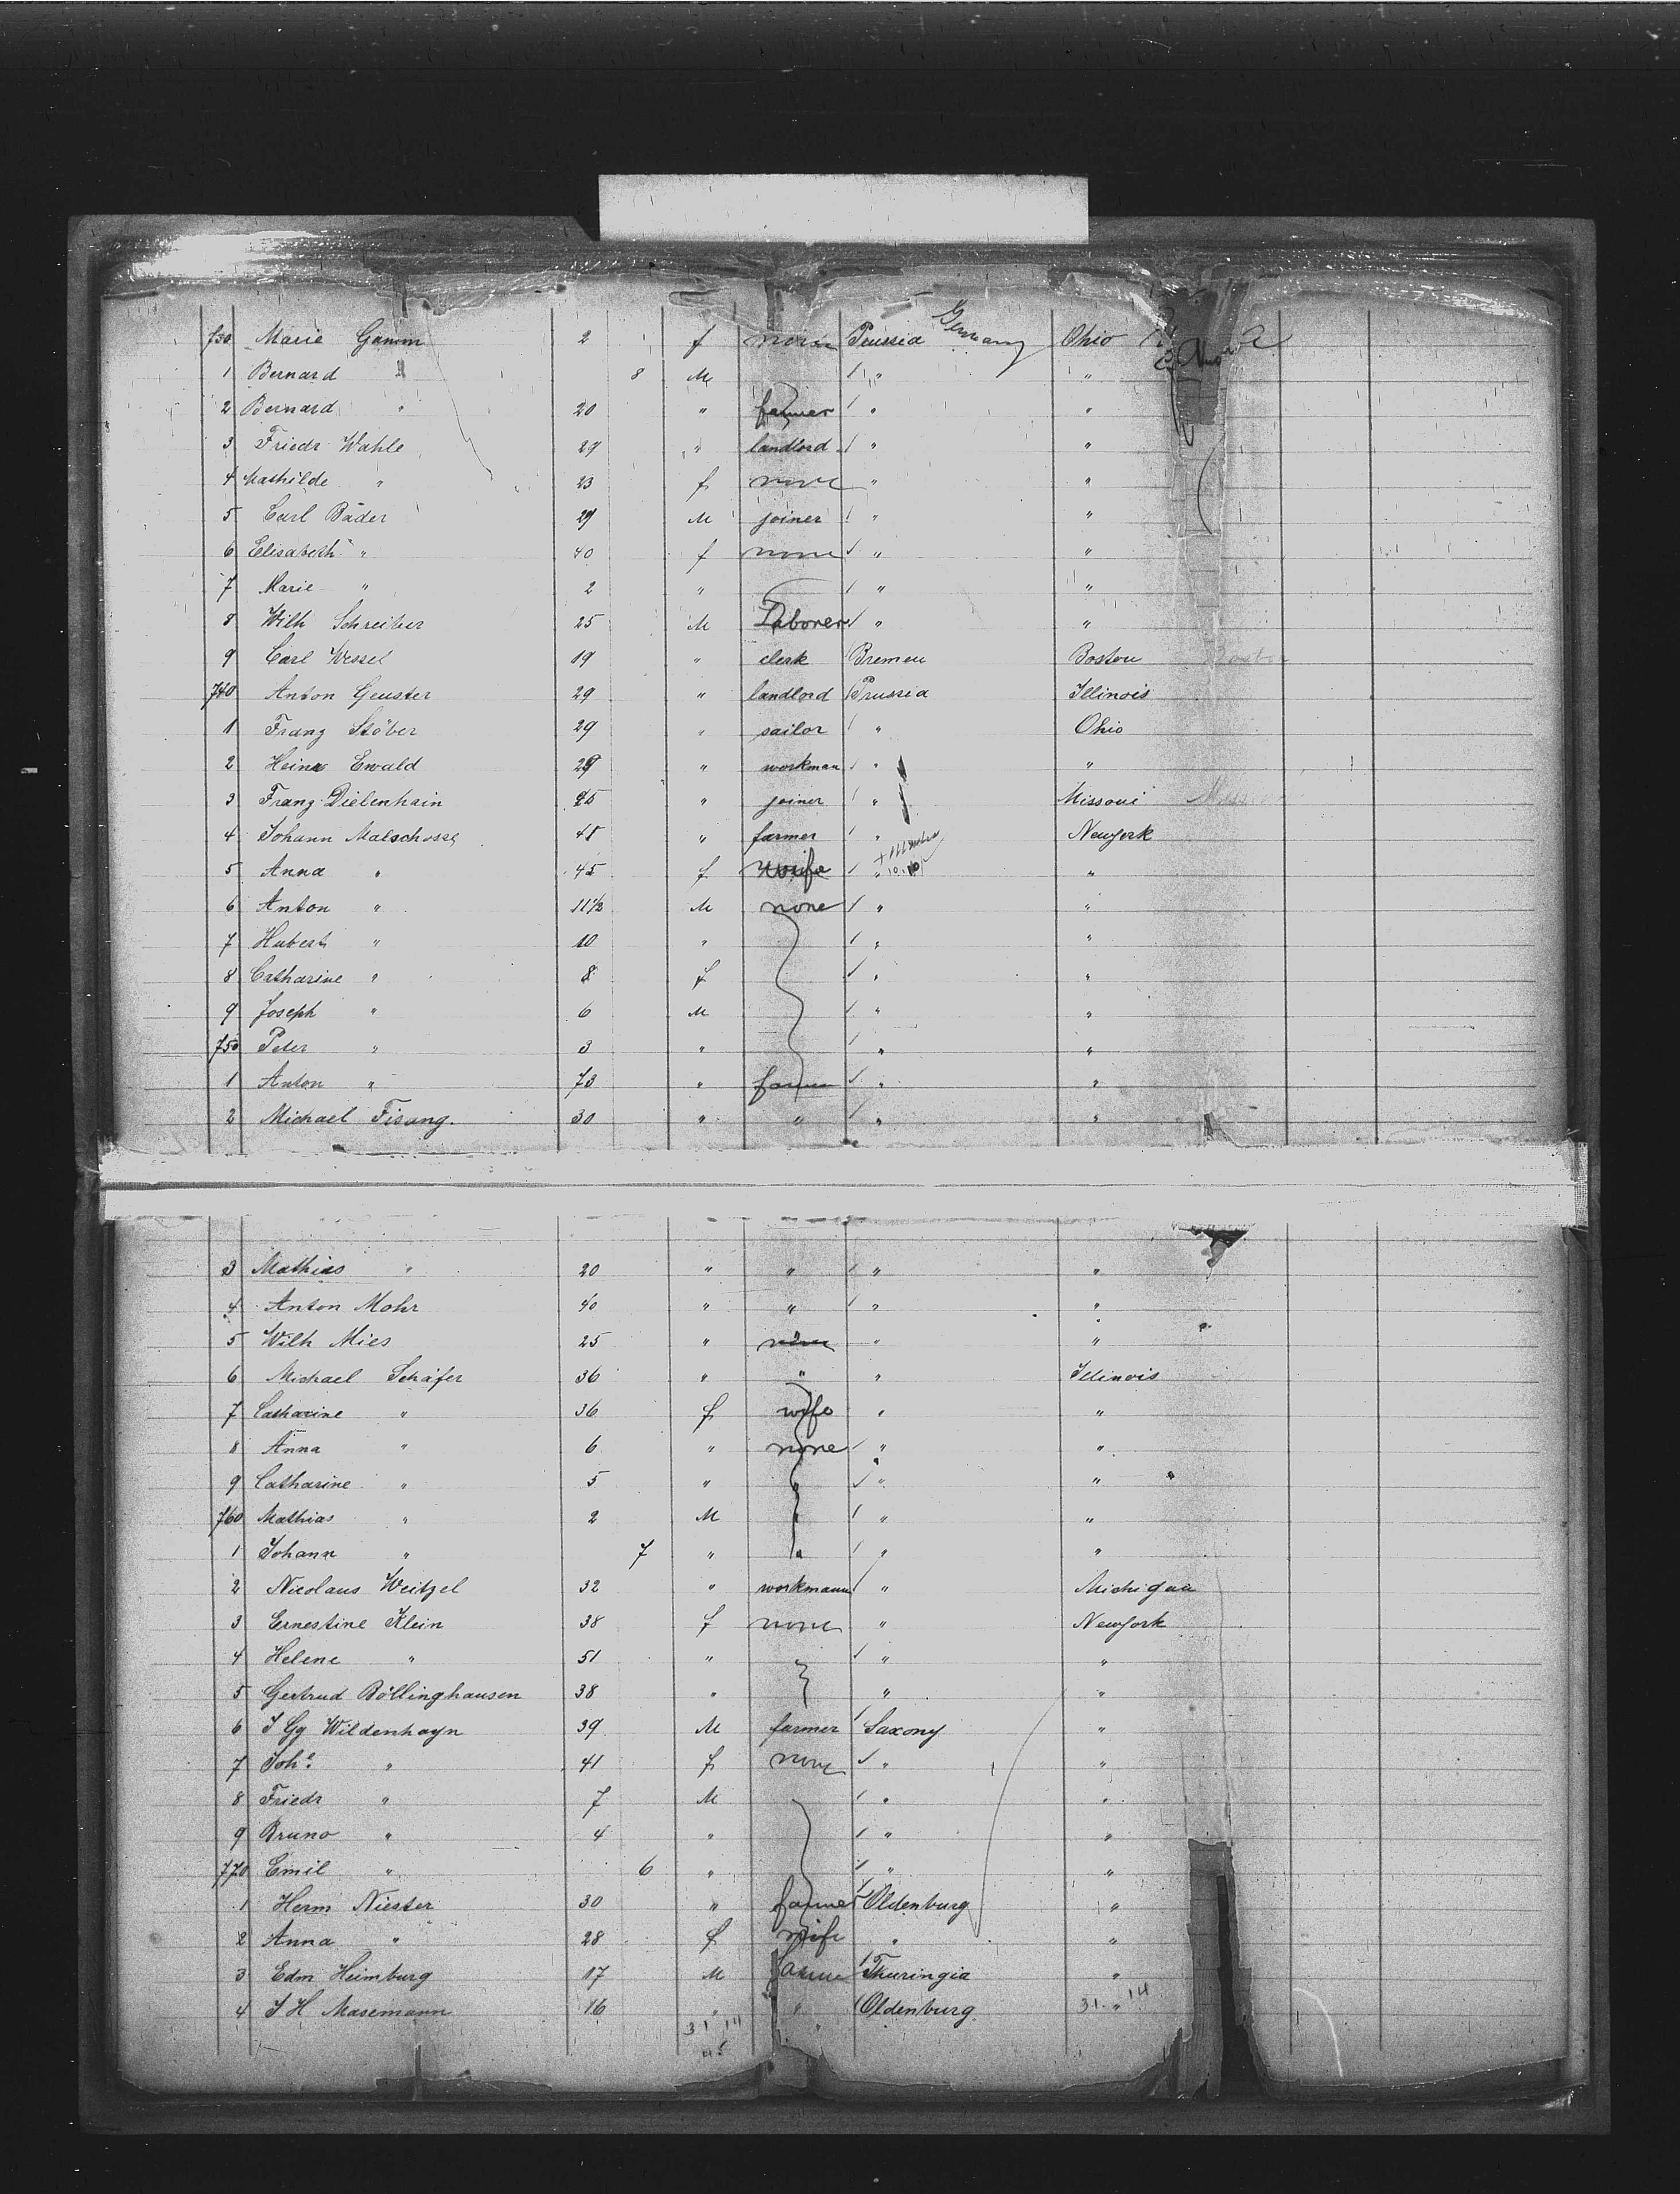 730 Marie Gamm 2 f none Prussia Germany Ohio
1 Bernard " 8 M / " "
2 Bernard " 20 " farmer / " "
3 Friedr Wahle 29 " landlord / " "
4 Mathilde " 23 f none " "
5 Carl Bäder 29 M joiner / " "
6 Elisabeth " 40 f none / " "
7 Marie " 2 " / " "
8 Wilh Schreiber 25 M Laborer / " "
9 Carl Wessel 19 " clerk Bremen Boston
740 Anton Geuster 29 " landlord / Prussia Illinois
1 Franz Stöber 29 " sailor / " Ohio
2 Heinr Ewald 29 " workman / " "
3 Franz Dielenhain 25 " joiner / " Missouri
4 Johann Malschoss 45 " farmer / " Newyork
5 Anna " 45 f wife / " "
6 Anton " 11½ M none / " "
7 Hubert " 10 " / " "
8 Catharine " 8 f / " "
9 Joseph " 6 M / " "
750 Peter " 3 " / " "
1 Anton " 73 " farmer / " "
2 Michael Fisang. 30 " " / " "
3 Mathias " 20 " " / " "
4 Anton Mohr 40 " " / " "
5 Wilh Mies 25 " none " "
6 Michael Schäfer 36 " " " Illinois
7 Catharine " 36 f wife " "
8 Anna " 6 " none / " "
9 Catharine " 5 " " / " "
760 Mathias " 2 M " / " "
1 Johann " 7 " " / " "
2 Nicolaus Weitzel 32 " workmann / " Michigan
3 Ernestine Klein 38 f none " Newyork
4 Helene " 51 " / " "
5 Gertrud Böllinghausen 38 " " "
6 J Gg Wildenhayn 39 M farmer / Saxony "
7 Johe " 41 f none / " "
8 Friedr " 7 M / " "
9 Bruno " 4 " / " "
770 Emil " 6 " / " "
1 Herm Niester 30 " farmer / Oldenburg "
2 Anna " 28 f wife " "
3 Edm Heimburg 17 M farmer / Thuringia "
4 J H Masemann 16 " " / Oldenburg 31. " 14
31 14
45